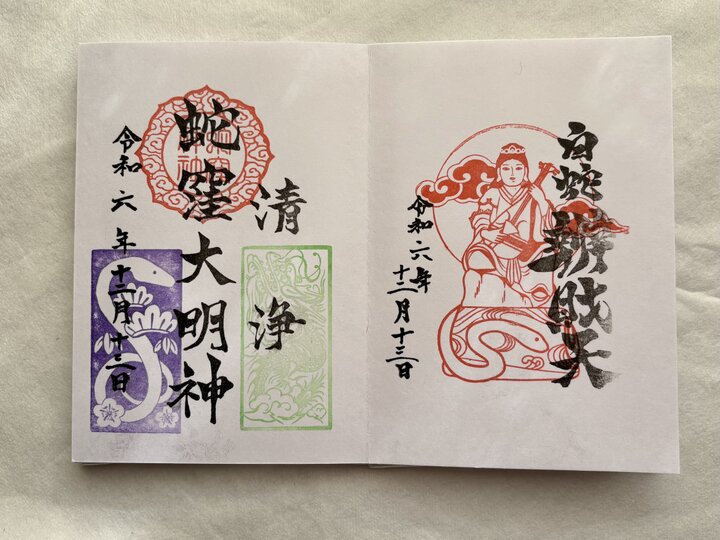 白蛇辨財天
令和六年
十二月十三日
清浄
蛇窪大明神
令和六年十二月十三日